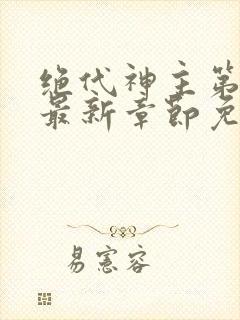 绝代神主第
最新章节免
易宪容